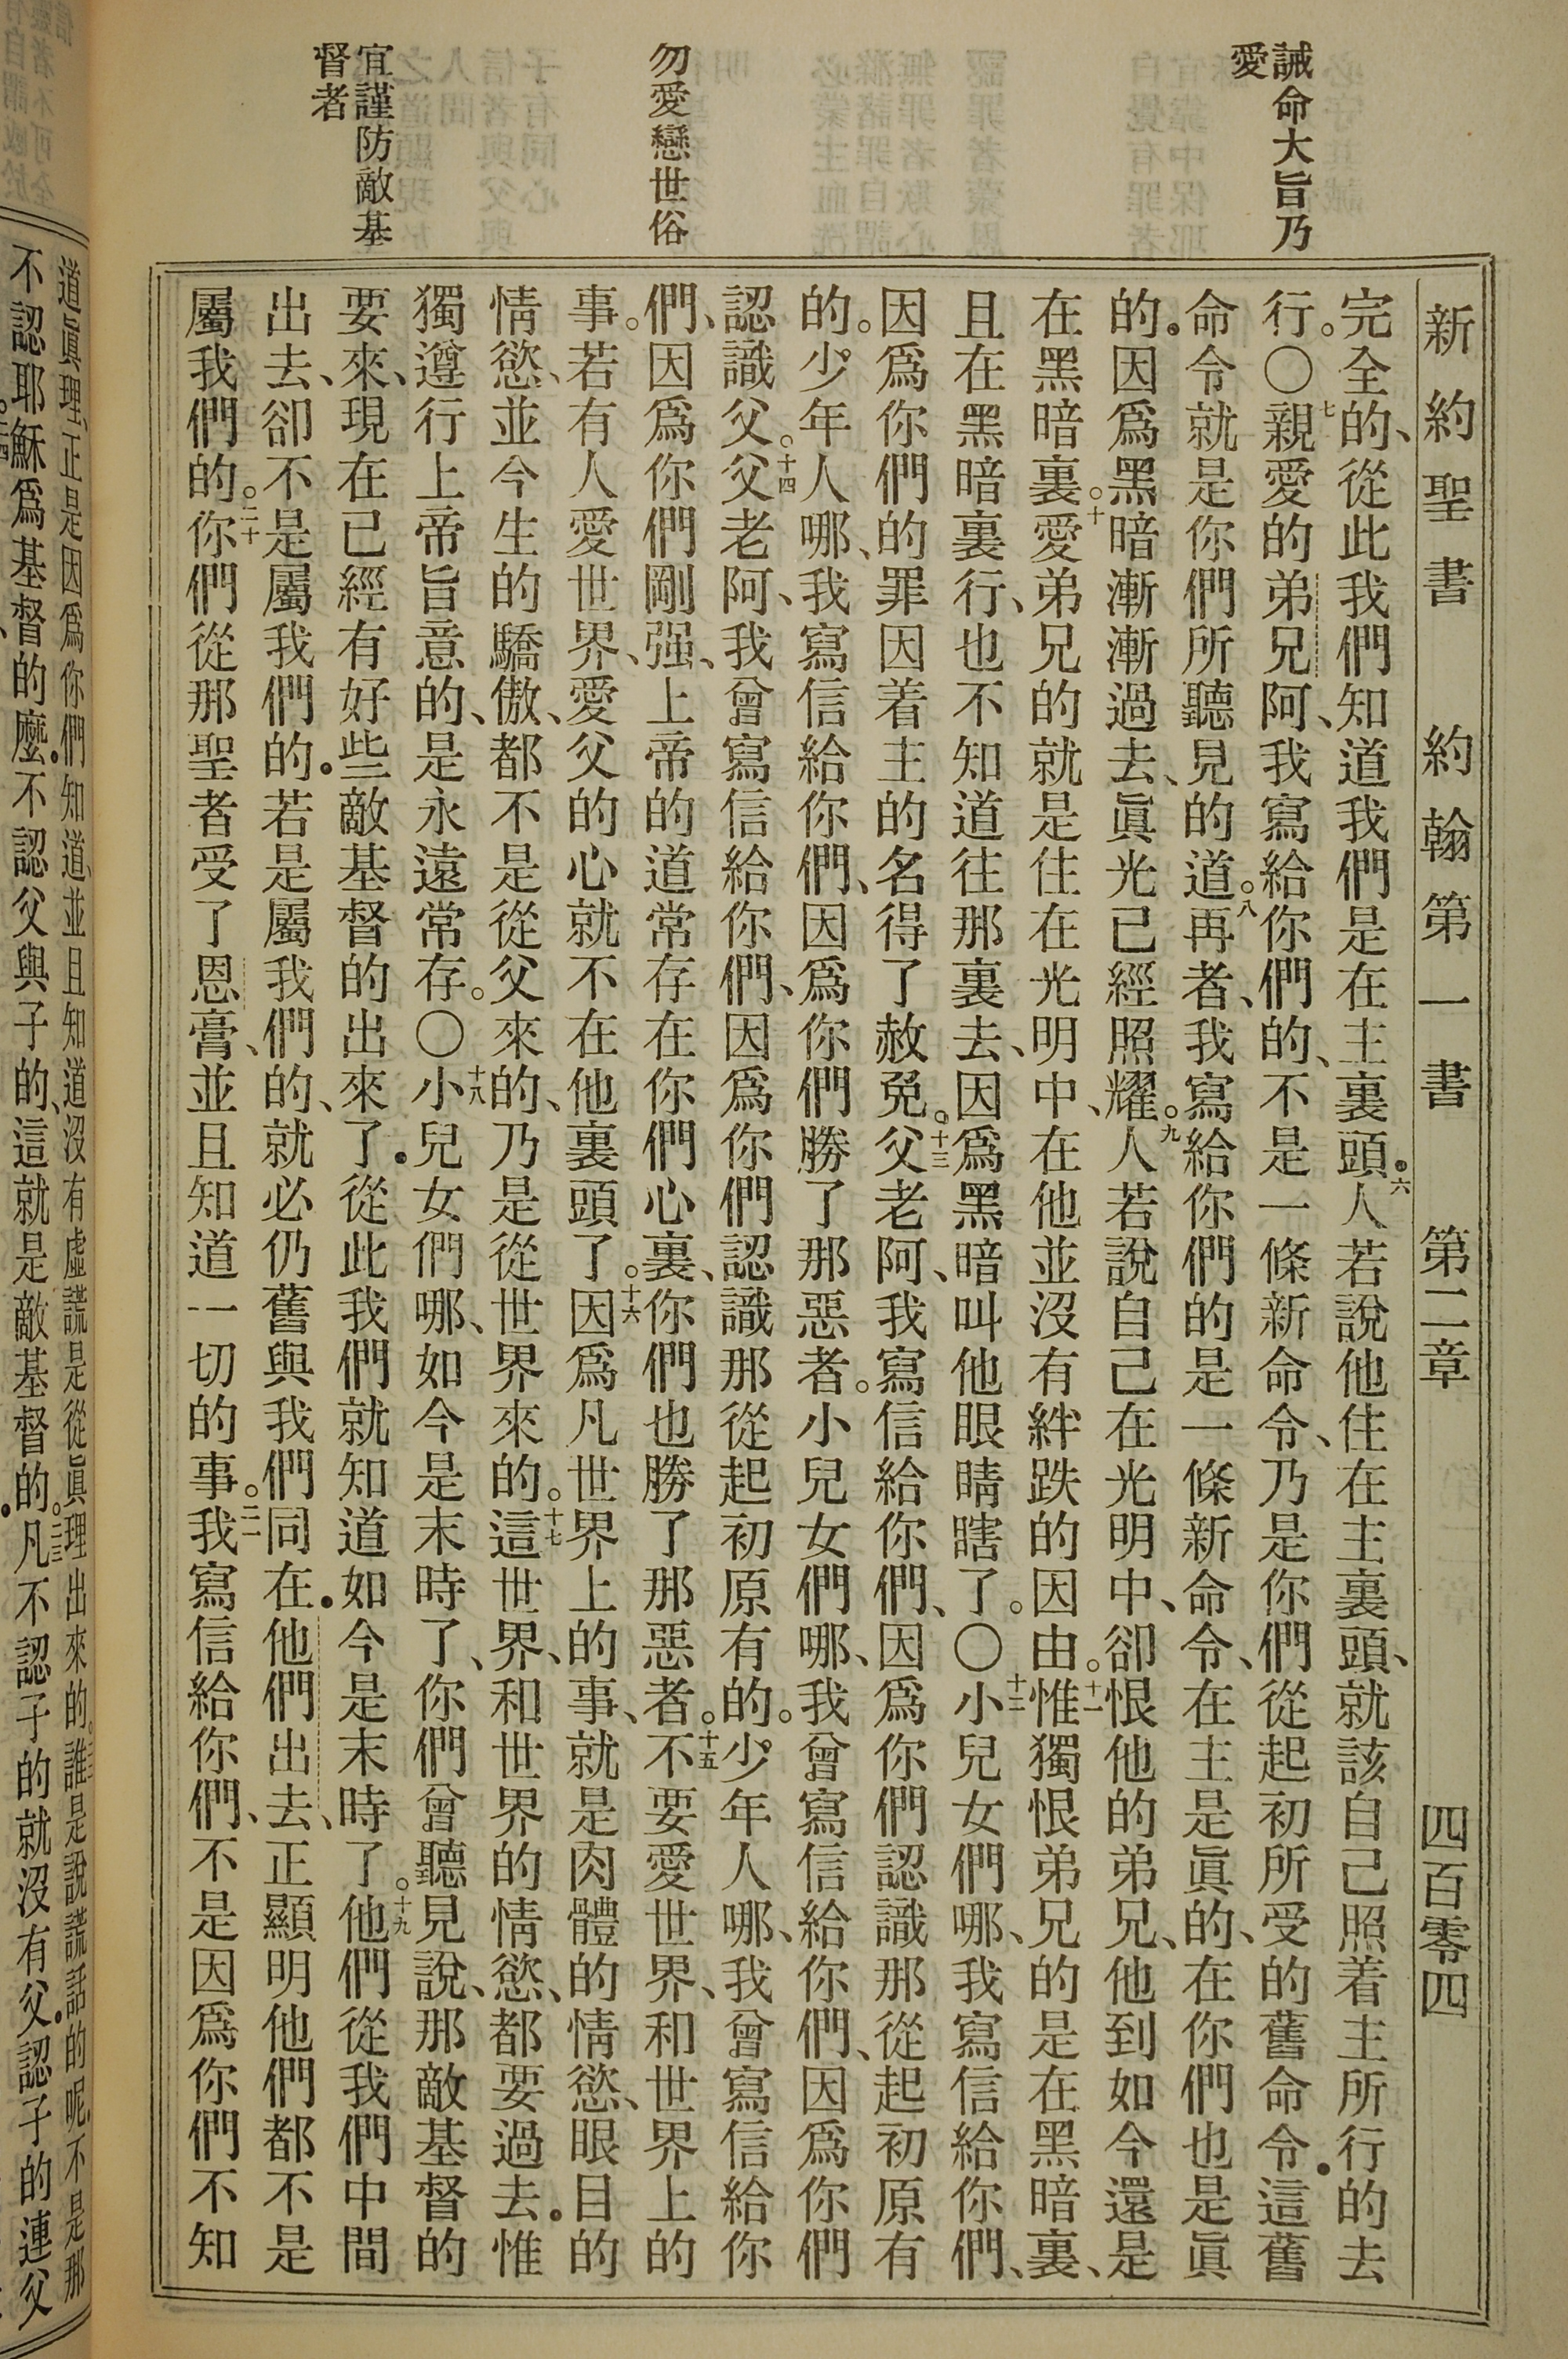 誡命大旨乃
愛
勿愛戀世俗
宜謹防敵基
督者
新約聖書 約翰第一書 第二章 四百零四
完全的、從此我們知道我們是在主裏頭．六人若說他住在主裏頭、就該自己照着主所行的去
行。〇七親愛的弟兄阿、我寫給你們的、不是一條新命令、乃是你們從起初所受的舊命令．這舊
命令就是你們所聽見的道。八再者、我寫給你們的是一條新命令、在主是眞的、在你們也是眞
的．因爲黑暗漸漸過去、眞光已經照耀。九人若說自己在光明中、卻恨他的弟兄、他到如今還是
在黑暗裏。十愛弟兄的就是住在光明中、在他並沒有絆跌的因由。十一惟獨恨弟兄的是在黑暗裏、
且在黑暗裏行、也不知道往那裏去、因爲黑暗叫他眼睛瞎了。〇十二小兒女們哪、我寫信給你們、
因爲你們的罪因着主的名得了赦免。十三父老阿、我寫信給你們、因爲你們認識那從起初原有
的。少年人哪、我寫信給你們、因爲你們勝了那惡者。小兒女們哪、我曾寫信給你們、因爲你們
認識父。十四父老阿、我曾寫信給你們、因爲你們認識那從起初原有的。少年人哪、我曾寫信給你
們、因爲你們剛强、上帝的道常存在你們心裏、你們也勝了那惡者。十五不要愛世界、和世界上的
事。若有人愛世界、愛父的心就不在他裏頭了。十六因爲凡世界上的事、就是肉體的情慾、眼目的
情慾、並今生的驕傲、都不是從父來的、乃是從世界來的。十七這世界、和世界的情慾、都要過去．惟
獨遵行上帝旨意的、是永遠常存。〇十八小兒女們哪、如今是末時了、你們曾聽見說、那敵基督的
要來、現在已經有好些敵基督的出來了．從此我們就知道如今是末時了。十九他們從我們中間
出去、卻不是屬我們的．若是屬我們的、就必仍舊與我們同在．他們出去、正顯明他們都不是
屬我們的。二十你們從那聖者受了恩膏、並且知道一切的事。二一我寫信給你們、不是因爲你們不知
道眞理、正是因爲你們知道、並且知道沒有虛謊是從眞理出來的。誰是說謊話的呢．不是那
不認耶穌爲基督的麼．不認父與子的、這就是敵基督的。二三凡不認子的就沒有父．認子的連父